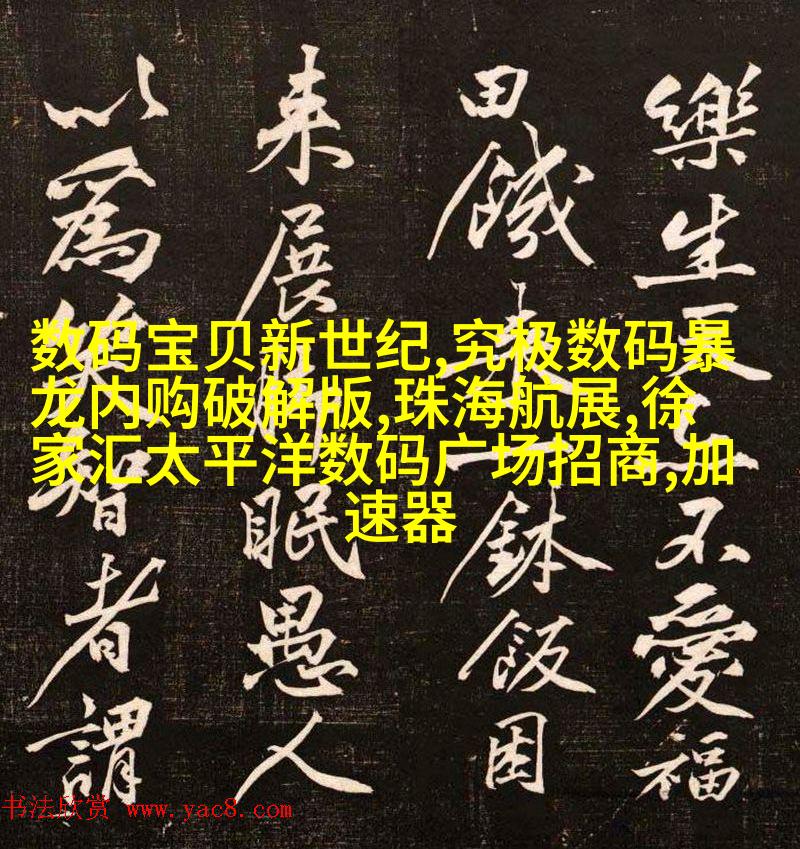 樂生天不愛福
田饑來一鉢飯困
來展眠愚人
以為笑智者謂
数码宝贝新世纪,究极数码暴
龙内购破解版,珠海航展,徐
家汇太平洋数码广场招商,加
速器
书法欣赏 www.yac8.com